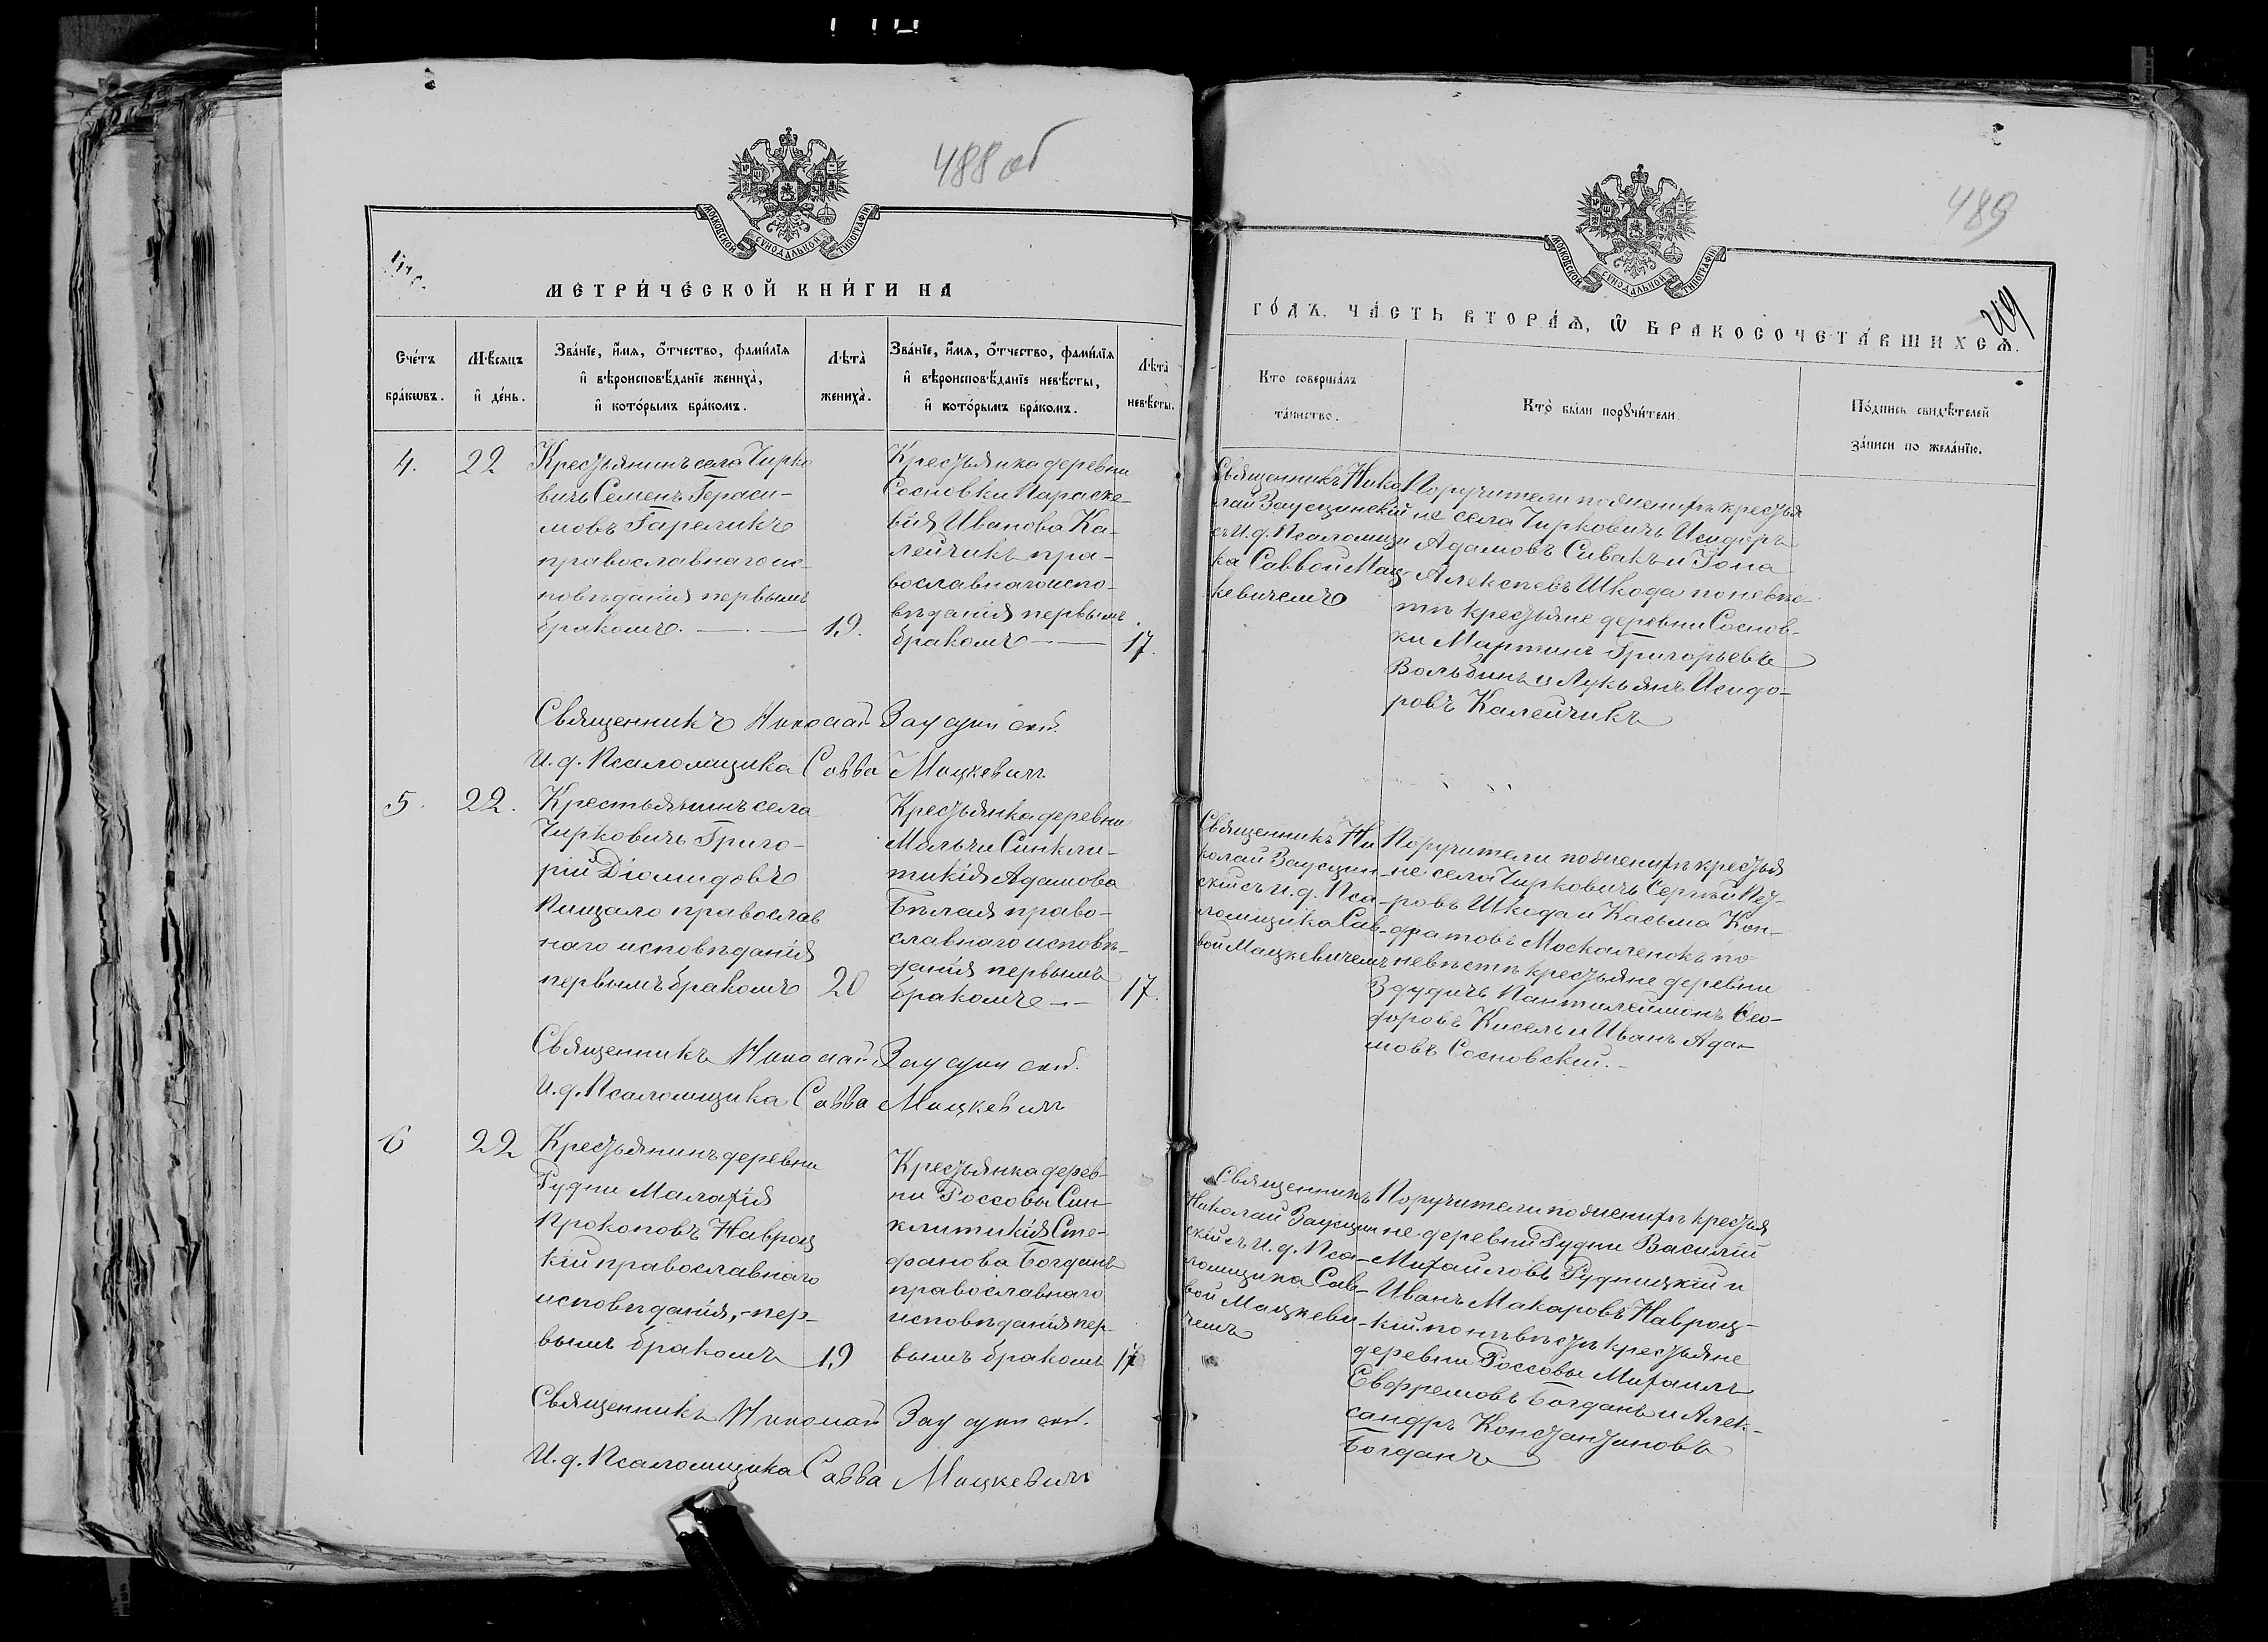 488 об
489
МОСКОВСКОЙ СѴНОДАЛЬНОЙ ТИПОГРАФІИ
МЕТРИ́ЧЕСКОЙ КНИ́ГИ НА
Сче́тъ бра́кωвъ.
Мѣ́сяцъ и҆ де́нь.
Зва́нїе, и҆́мѧ, ѻ҆́тчество, фами́лїѧ
и҆ вѣроисповѣ́данїе жениха̀,
и҆ кото́рымъ бра́комъ.
Лѣта̀ жениха̀.
Зва́нїе, и҆́мѧ, ѻ҆́тчество, фами́лїѧ
и҆ вѣроисповѣ́данїе невѣ́сты,
и҆ кото́рымъ бра́комъ.
Лѣта̀ невѣ́сты.
4.
22
Крестьянинъ села Чирко
вичъ Семенъ Гераси-
мовъ Гареликъ
православнаго ис-
повѣданія первымъ
бракомъ.
19.
Крестьянка деревни
Сосновки Параске-
вія Иванова Ка-
лейчикъ пра-
вославнаго испо-
вѣданія первымъ
бракомъ
17.
Священникъ Николай Заусцинскій.
И. д. Псаломщика Савва Мацкевичъ
5.
22.
Крестьянинъ села
Чирковичъ Григо-
рій Діомидовъ
Пищало православ
наго исповѣданія
первымъ бракомъ
20
Крестьянка деревни
Мольчи Синкли-
тикія Адамова
Бѣлая право-
славнаго исповѣ-
данія первымъ
бракомъ
17.
Священникъ Николай Заусцинскій.
И. д. Псаломщика Савва Мацкевичъ
6
22
Крестьянинъ деревни
Рудни Малахія
Прокоповъ Навроц
кій православнаго
исповѣданія, - пер-
вымъ бракомъ
19
Крестьянка дерев-
ни Россовы Син-
клитикія Сте-
фанова Богданъ
православнаго
исповѣданія пер-
вымъ бракомъ
17
Священникъ Николай Заусцинскій.
И. д. Псаломщика Савва Мацкевичъ
МОСКОВСКОЙ СѴНОДАЛЬНОЙ ТИПОГРАФІИ
ГО́ДЪ, ЧА́СТЬ ВТОРА́Ѧ, Ѡ҆ БРАКОСОЧЕТА́ВШИХСѦ.
Кто соверша́лъ
та́инство.
Кто̀ бы́ли порꙋчи́тели.
По́дпись свидѣ́телей
за́писи по жела́нїю.
Священникъ Нико
лай Заусцинскій
съ И. д. Псаломщи
ка Саввой Мац-
кевичемъ
Поручители по женихѣ крестья
не села Чирковичъ Исидоръ
Адамовъ Сивакъ и Іона
Алексѣевъ Шкода по невѣс-
тѣ крестьяне деревни Соснов-
ки Мартинъ Григорьевъ
Вольбинъ и Лукьянъ Исидо-
ровъ Калейчикъ
Священникъ Ни
колай Заусцин-
скій съ И. д. Пса-
ломщика Сав-
вой Мацкевичемъ
Поручители по женихѣ крестья
не села Чирковичъ Сергѣй Пет-
ровъ Шкода и Касьма Кон-
дратовъ Москаленокъ по
невѣстѣ крестьяне деревни
Здудичъ Панталеймонъ Ѳео-
доровъ Кисель и Иванъ Ада-
мовъ Сосновскій.
Священникъ
Николай Заусцин
скій съ И. д. Пса-
ломщика Сав-
вой Мацкеви-
чемъ
Поручители по женихѣ крестья
не деревни Рудни Василій
Михайловъ Рудницкій и
Иванъ Макаровъ Навроц-
кій. по нѣвѣстѣ крестьяне
деревни Россовы Михаилъ
Евфремовъ Богданъ и Алек-
сандръ Константиновъ
Богданъ